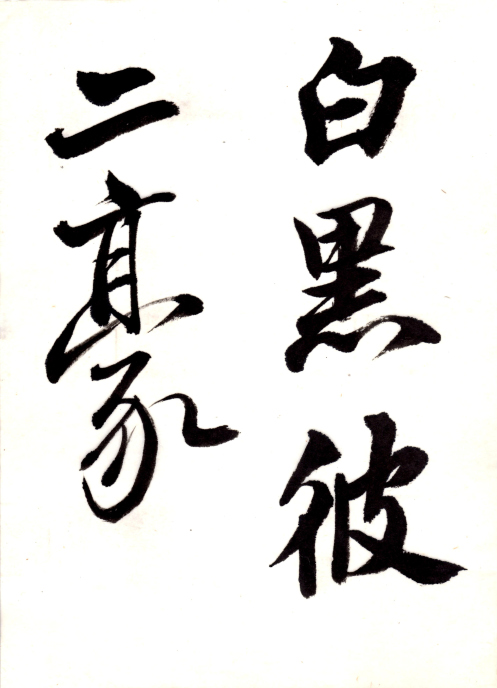 白黒彼
二豪